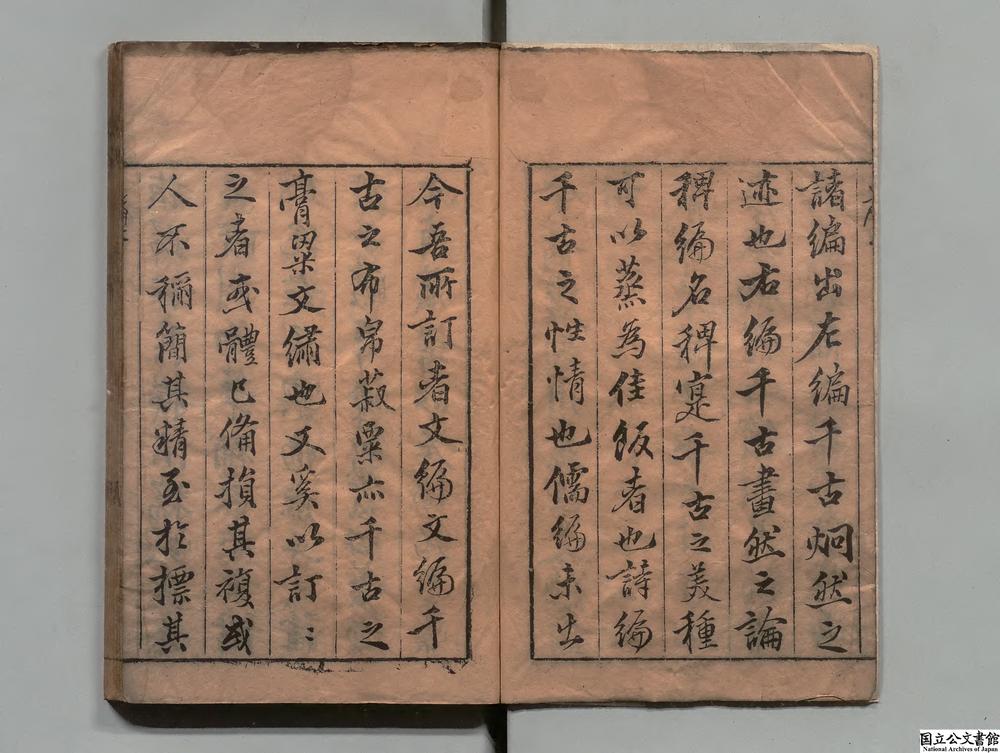 諸編出左編千古炯然之
迹也右編千古畫然之論
稗編名稗寔千古之美種
可以蒸為佳飯者也詩編
千古之性情也儒編未出
今吾所訂者文編文編千
古之布帛菽粟亦千古之
膏粱文繡也又奚以訂〻
之者或體已俻損其複或
人不稱簡其精至於摽其
国立公文書館
National Archives of Japan